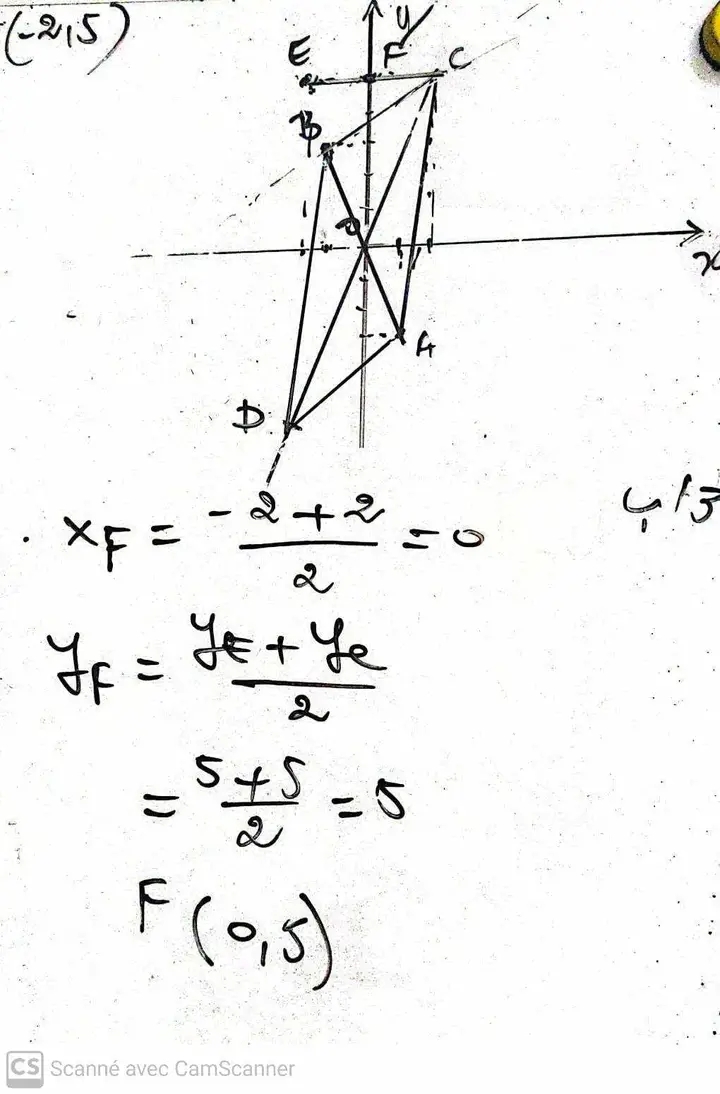 (-2,5)
y
E F C
B
O
x
A
D
x_F = (-2+2)/2 = 0
y_F = (y_E + y_C)/2
= (5+5)/2 = 5
F (0,5)
CS Scanné avec CamScanner